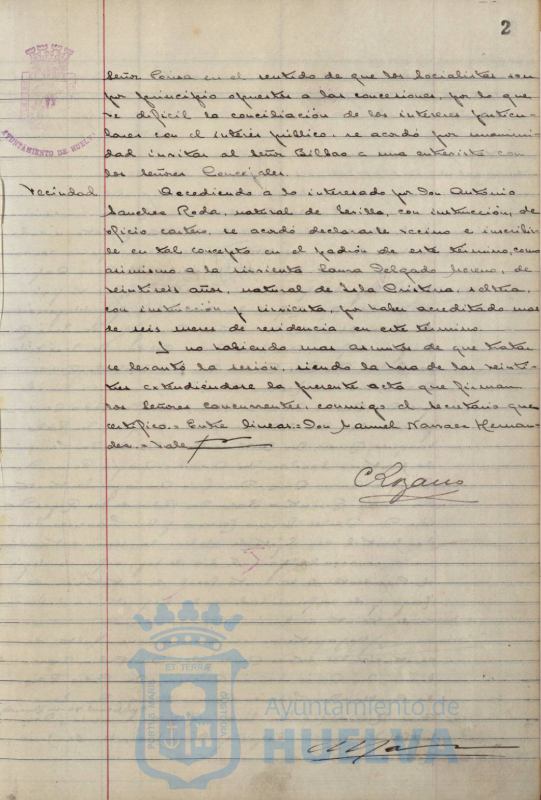 2
AYUNTAMIENTO DE HUELVA
Señor Ponsa en el sentido de que los Socialistas son
por principio opuestos a las concesiones, por lo que
es dificil la conciliación de los intereses particu-
lares con el interés público, se acordó por unanimi-
dad invitar al Señor Bilbao a una entrevista con
los señores Concejales.
Vecindad
Accediendo a lo interesado por Don Antonio
Sanchez Roda, natural de Sevilla, con instrucción, de
oficio cartero, se acordó declararle vecino e inscribir-
le en tal concepto en el padrón de este término, como
asimismo a la sirvienta Laura Delgado Moreno, de
veintiseis años, natural de Isla Cristina, soltera,
con instrucción y sirvienta, por haber acreditado mas
de seis meses de residencia en este término.
Y no habiendo mas asuntos de que tratar
se levantó la sesión, siendo la hora de las veinti-
tres extendiéndose la presente acta que firman
los señores concurrentes, conmigo el Secretario que
certifico.= Entre lineas.= Don Manuel Narvaez Hernan-
dez.= Vale
ET TERRÆ
PORTUS MARIS
CUSTODIA
Ayuntamiento de
HUELVA